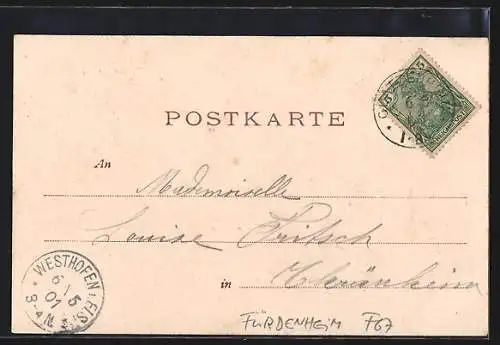 POSTKARTE
An
Mademoiselle
Louise Fritsch
in
WESTHOFEN i. ELS.
6 / 5
01
8-4 N.
FÜRDENHEIM F67